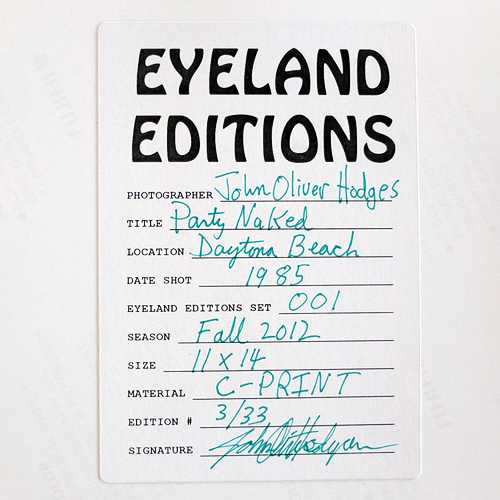 EYELAND
EDITIONS
PHOTOGRAPHER John Oliver Hodges
TITLE Party Naked
LOCATION Daytona Beach
DATE SHOT 1985
EYELAND EDITIONS SET 001
SEASON Fall 2012
SIZE 11 x 14
MATERIAL C-PRINT
EDITION # 3/33
SIGNATURE